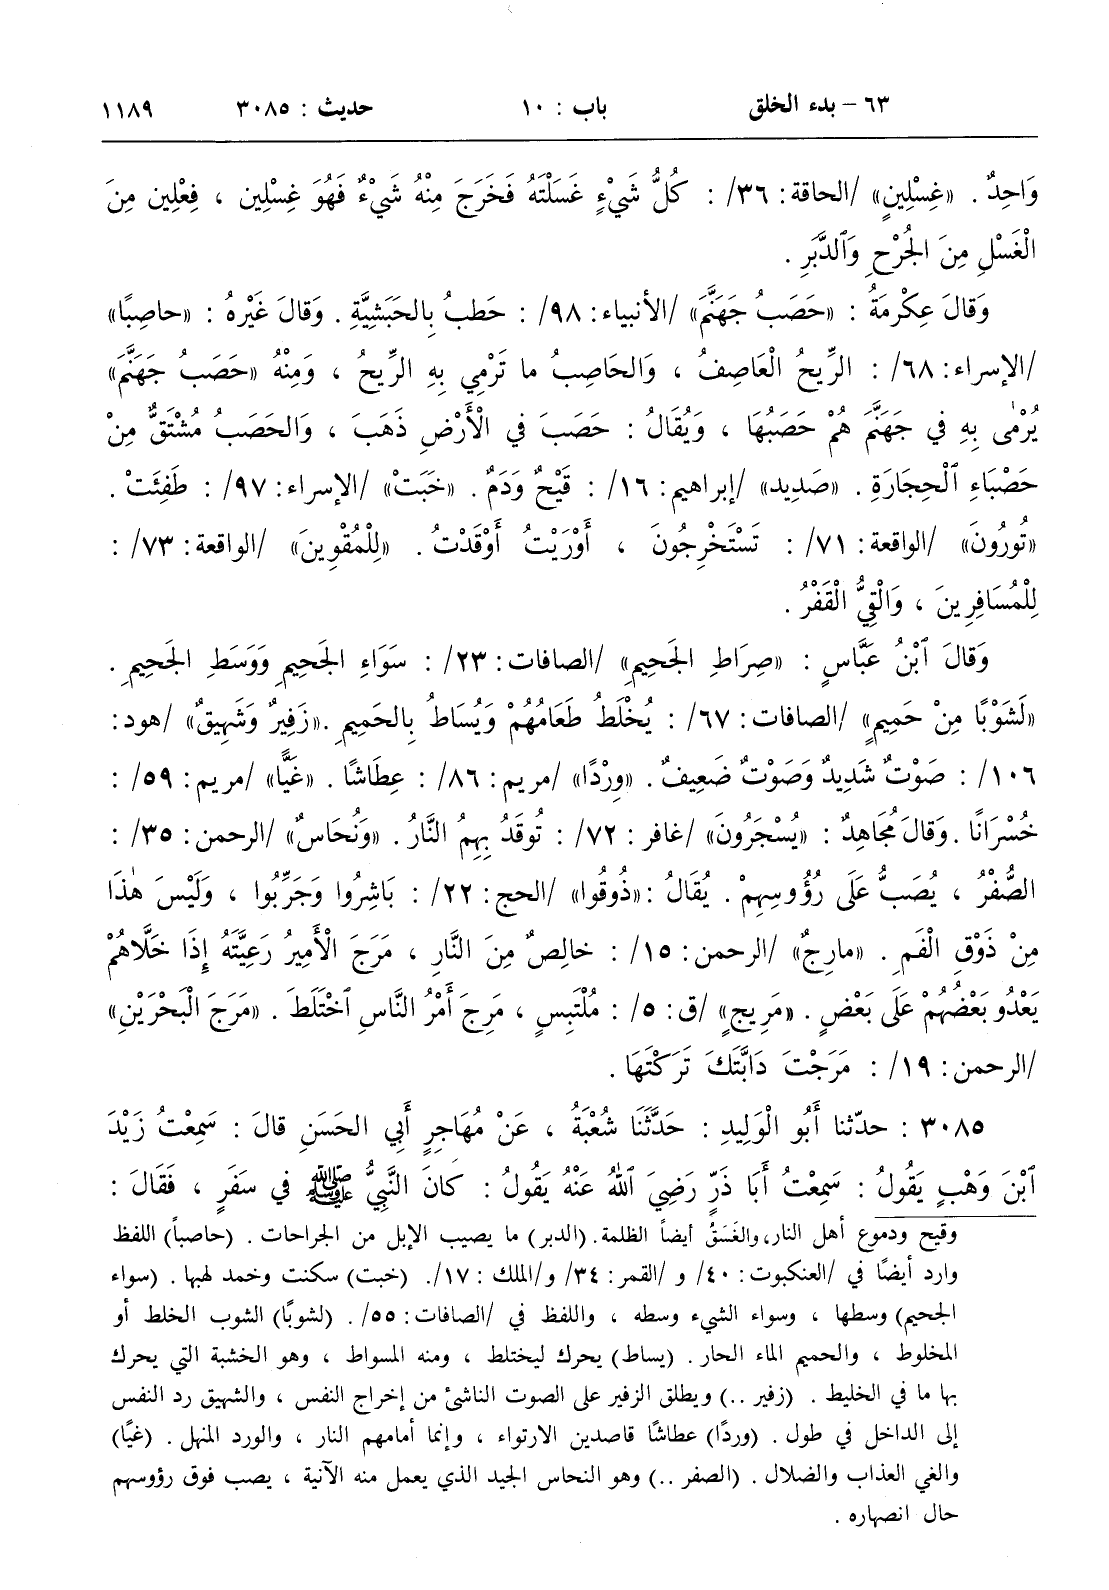 ٦٣ - بدء الخلق باب : ١٠ حديث : ٣٠٨٥ ١١٨٩
وَاحِدٌ . «غِسْلِينٍ» /الحاقة: ٣٦/ : كُلُّ شَيْءٍ غَسَلْتَهُ فَخَرَجَ مِنْهُ شَيْءٌ فَهُوَ غِسْلِين ، فِعْلِين مِنَ
الْغَسْلِ مِنَ الجُرْحِ وَٱلدَّبَرِ .
وَقَالَ عِكْرِمَةُ : «حَصَبُ جَهَنَّمَ» /الأنبياء: ٩٨/ : حَطبُ بِالحَبَشِيَّةِ . وَقالَ غَيْرُهُ : «حاصِبًا»
/الإسراء: ٦٨/ : الرِّيحُ الْعَاصِفُ ، وَالحَاصِبُ ما تَرْمِي بِهِ الرِّيحُ ، وَمِنْهُ «حَصَبُ جَهَنَّمَ»
يُرْمٰى بِهِ في جَهَنَّمَ هُمْ حَصَبُهَا ، وَيُقَالُ : حَصَبَ في الْأَرْضِ ذَهَبَ ، وَالحَصَبُ مُشْتَقٌّ مِنْ
حَصْبَاءِ ٱلْحِجَارَةِ . «صَدِيد» /إبراهيم: ١٦/ : قَيْحٌ وَدَمٌ . «خَبَتْ» /الإسراء: ٩٧/ : طَفِئَتْ .
«تُورُونَ» /الواقعة: ٧١/ : تَسْتَخْرِجُونَ ، أَوْرَيْتُ أَوْقَدْتُ . «لِلْمُقْوِينَ» /الواقعة: ٧٣/ :
لِلْمُسَافِرِينَ ، وَالْقِيُّ الْقَفْرُ .
وَقالَ ٱبْنُ عَبَّاسٍ : «صِرَاطِ الجَحِيمِ» /الصافات: ٢٣/ : سَوَاءِ الجَحِيمِ وَوَسَطِ الجَحِيمِ .
«لَشَوْبًا مِنْ حَمِيمٍ» /الصافات: ٦٧/ : يُخْلَطُ طَعَامُهُمْ وَيُسَاطُ بِالحَمِيمِ .«زَفِيرٌ وَشَهِيقٌ» /هود:
١٠٦/ : صَوْتٌ شَدِيدٌ وَصَوْتٌ ضَعِيفٌ . «وِرْدًا» /مريم: ٨٦/ : عِطَاشًا . «غَيًّا» /مريم: ٥٩/ :
خُسْرَانًا .وَقالَ مُجَاهِدٌ : «يُسْجَرُونَ» /غافر : ٧٢/ : تُوقَدُ بِهِمُ النَّارُ . «وَنُحَاسٌ» /الرحمن: ٣٥/ :
الصُّفْرُ ، يُصَبُّ عَلَى رُؤُوسِهِمْ . يُقَالُ :«ذُوقوا» /الحج: ٢٢/ : بَاشِرُوا وَجَرِّبُوا ، وَلَيْسَ هٰذَا
مِنْ ذَوْقِ الْفَمِ . «مارِجٌ» /الرحمن: ١٥/ : خالِصٌ مِنَ النَّارِ ، مَرَجَ الْأَمِيرُ رَعِيَّتَهُ إِذَا خَلَّاهُمْ
يَعْدُو بَعْضُهُمْ عَلَى بَعْضٍ . «مَرِيجٍ» /ق: ٥/ : مُلْتَبِسٍ ، مَرِجَ أَمْرُ النَّاسِ ٱخْتَلَطَ . «مَرَجَ الْبَحْرَيْنِ»
/الرحمن: ١٩/ : مَرَجْتَ دَابَّتَكَ تَرَكْتَهَا .
٣٠٨٥ : حدّثنا أَبُو الْوَلِيدِ : حَدَّثَنَا شُعْبَةُ ، عَنْ مُهَاجِرٍ أَبِي الحَسَنِ قالَ : سَمِعْتُ زَيْدَ
ٱبْنَ وَهْبٍ يَقُولُ : سَمِعْتُ أَبَا ذَرٍّ رَضِيَ ٱللّٰهُ عَنْهُ يَقُولُ : كانَ النَّبِيُّ ﷺ في سَفَرٍ ، فَقَالَ :
وقيح ودموع أهل النار، والغَسَقُ أيضاً الظلمة. (الدبر) ما يصيب الإبل من الجراحات . (حاصباً) اللفظ
وارد أيضًا في /العنكبوت: ٤٠/ و /القمر: ٣٤/ و/الملك : ١٧/. (خبت) سكنت وخمد لهبها . (سواء
الجحيم) وسطها ، وسواء الشيء وسطه ، واللفظ في /الصافات: ٥٥/ . (لشوبًا) الشوب الخلط أو
المخلوط ، والحميم الماء الحار . (يساط) يحرك ليختلط ، ومنه المسواط ، وهو الخشبة التي يحرك
بها ما في الخليط . (زفير ..) ويطلق الزفير على الصوت الناشئ من إخراج النفس ، والشهيق رد النفس
إلى الداخل في طول . (وردًا) عطاشًا قاصدين الارتواء ، وإنما أمامهم النار ، والورد المنهل . (غيًا)
والغي العذاب والضلال . (الصفر ..) وهو النحاس الجيد الذي يعمل منه الآنية ، يصب فوق رؤوسهم
حال انصهاره .